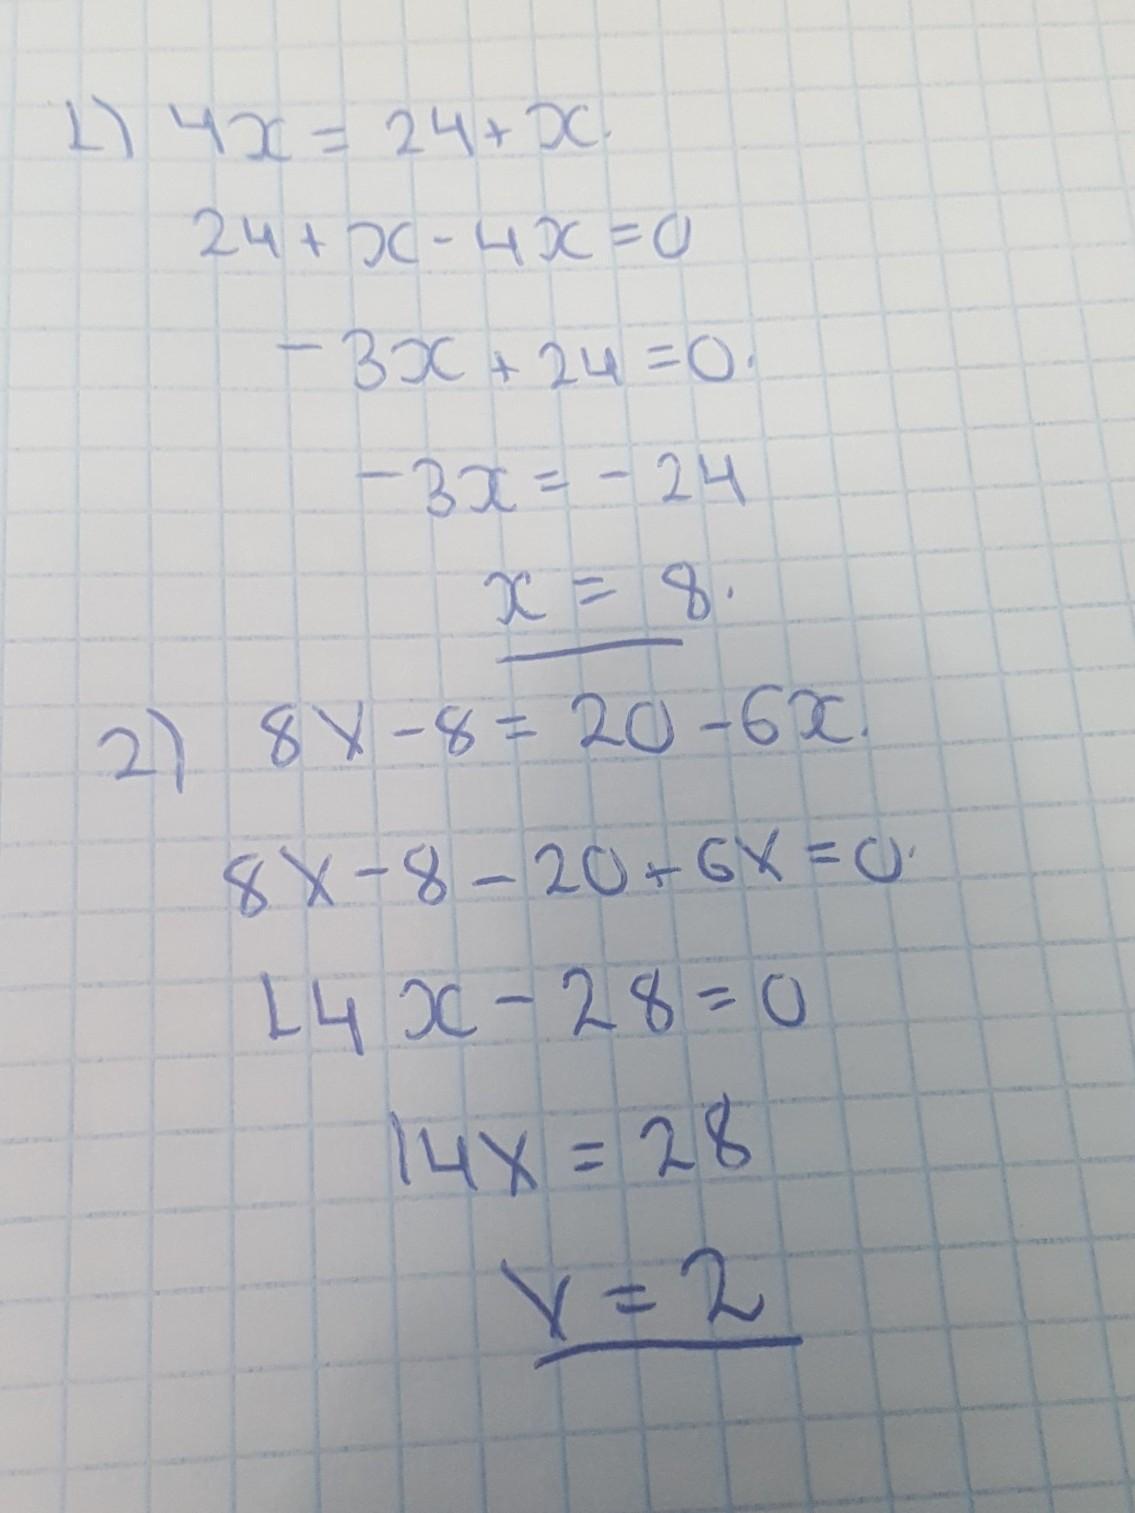 1) 4x = 24 + x.
24 + x - 4x = 0
- 3x + 24 = 0.
- 3x = - 24
x = 8.
2) 8x - 8 = 20 - 6x.
8x - 8 - 20 + 6x = 0.
14x - 28 = 0
14x = 28
x = 2